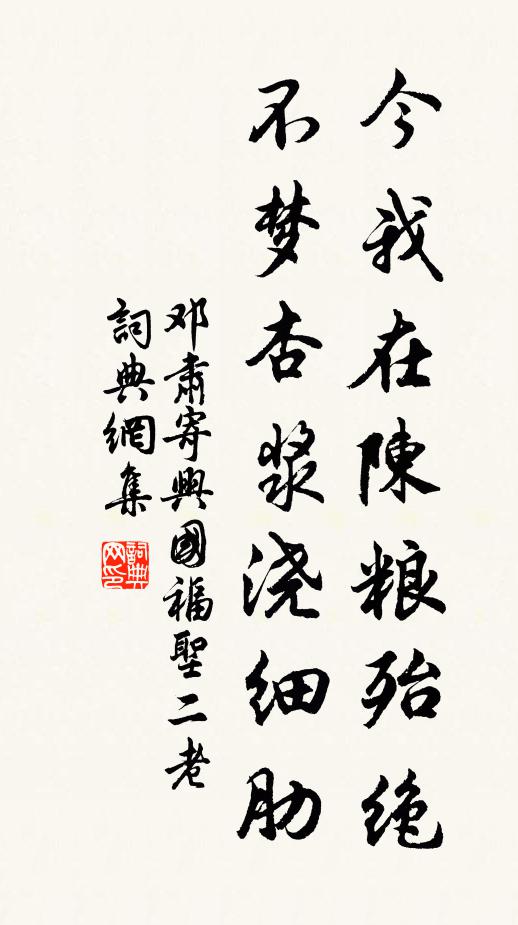 今我在陳粮殆绝
不梦杏漿浇细肋
邓肃寄興國福聖二老
詞典網集
詞典网印